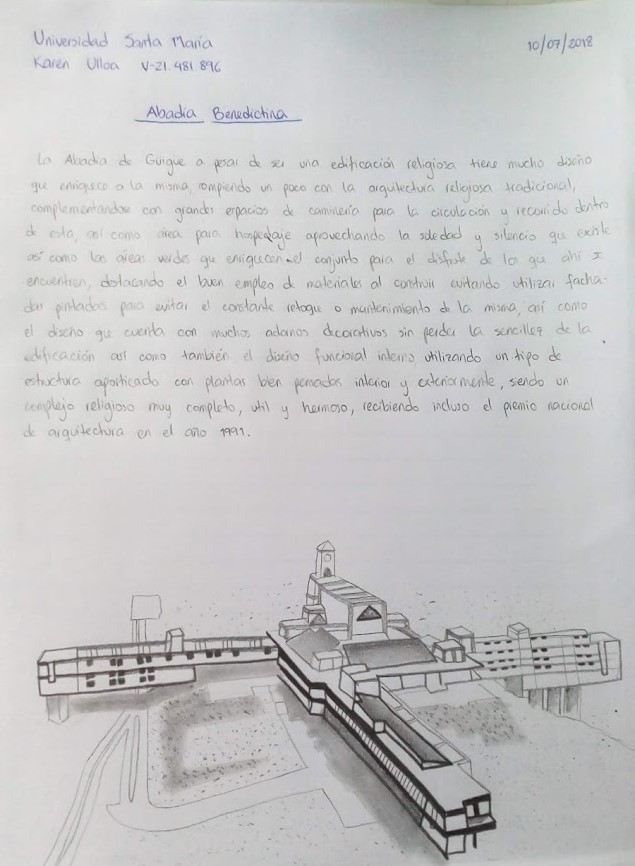 Universidad Santa María
10/07/2018
Karen Ulloa V-21.481.896
Abadía Benedictina
La Abadía de Guigue a pesar de ser una edificación religiosa tiene mucho diseño
que enriquece a la misma, rompiendo un poco con la arquitectura religiosa tradicional,
complementandose con grandes espacios de caminería para la circulación y recorrido dentro
de esta, así como área para hospedaje aprovechando la soledad y silencio que existe
así como las áreas verdes que enriquecen el conjunto para el disfrute de los que ahí se
encuentren, destacando el buen empleo de materiales al construir evitando utilizar facha-
das pintadas para evitar el constante retoque o mantenimiento de la misma, así como
el diseño que cuenta con muchos adornos decorativos sin perder la sencillez de la
edificación así como también el diseño funcional interno, utilizando un tipo de
estructura aporticado con plantas bien pensadas interior y exteriormente, siendo un
complejo religioso muy completo, util y hermoso, recibiendo incluso el premio nacional
de arquitectura en el año 1991.